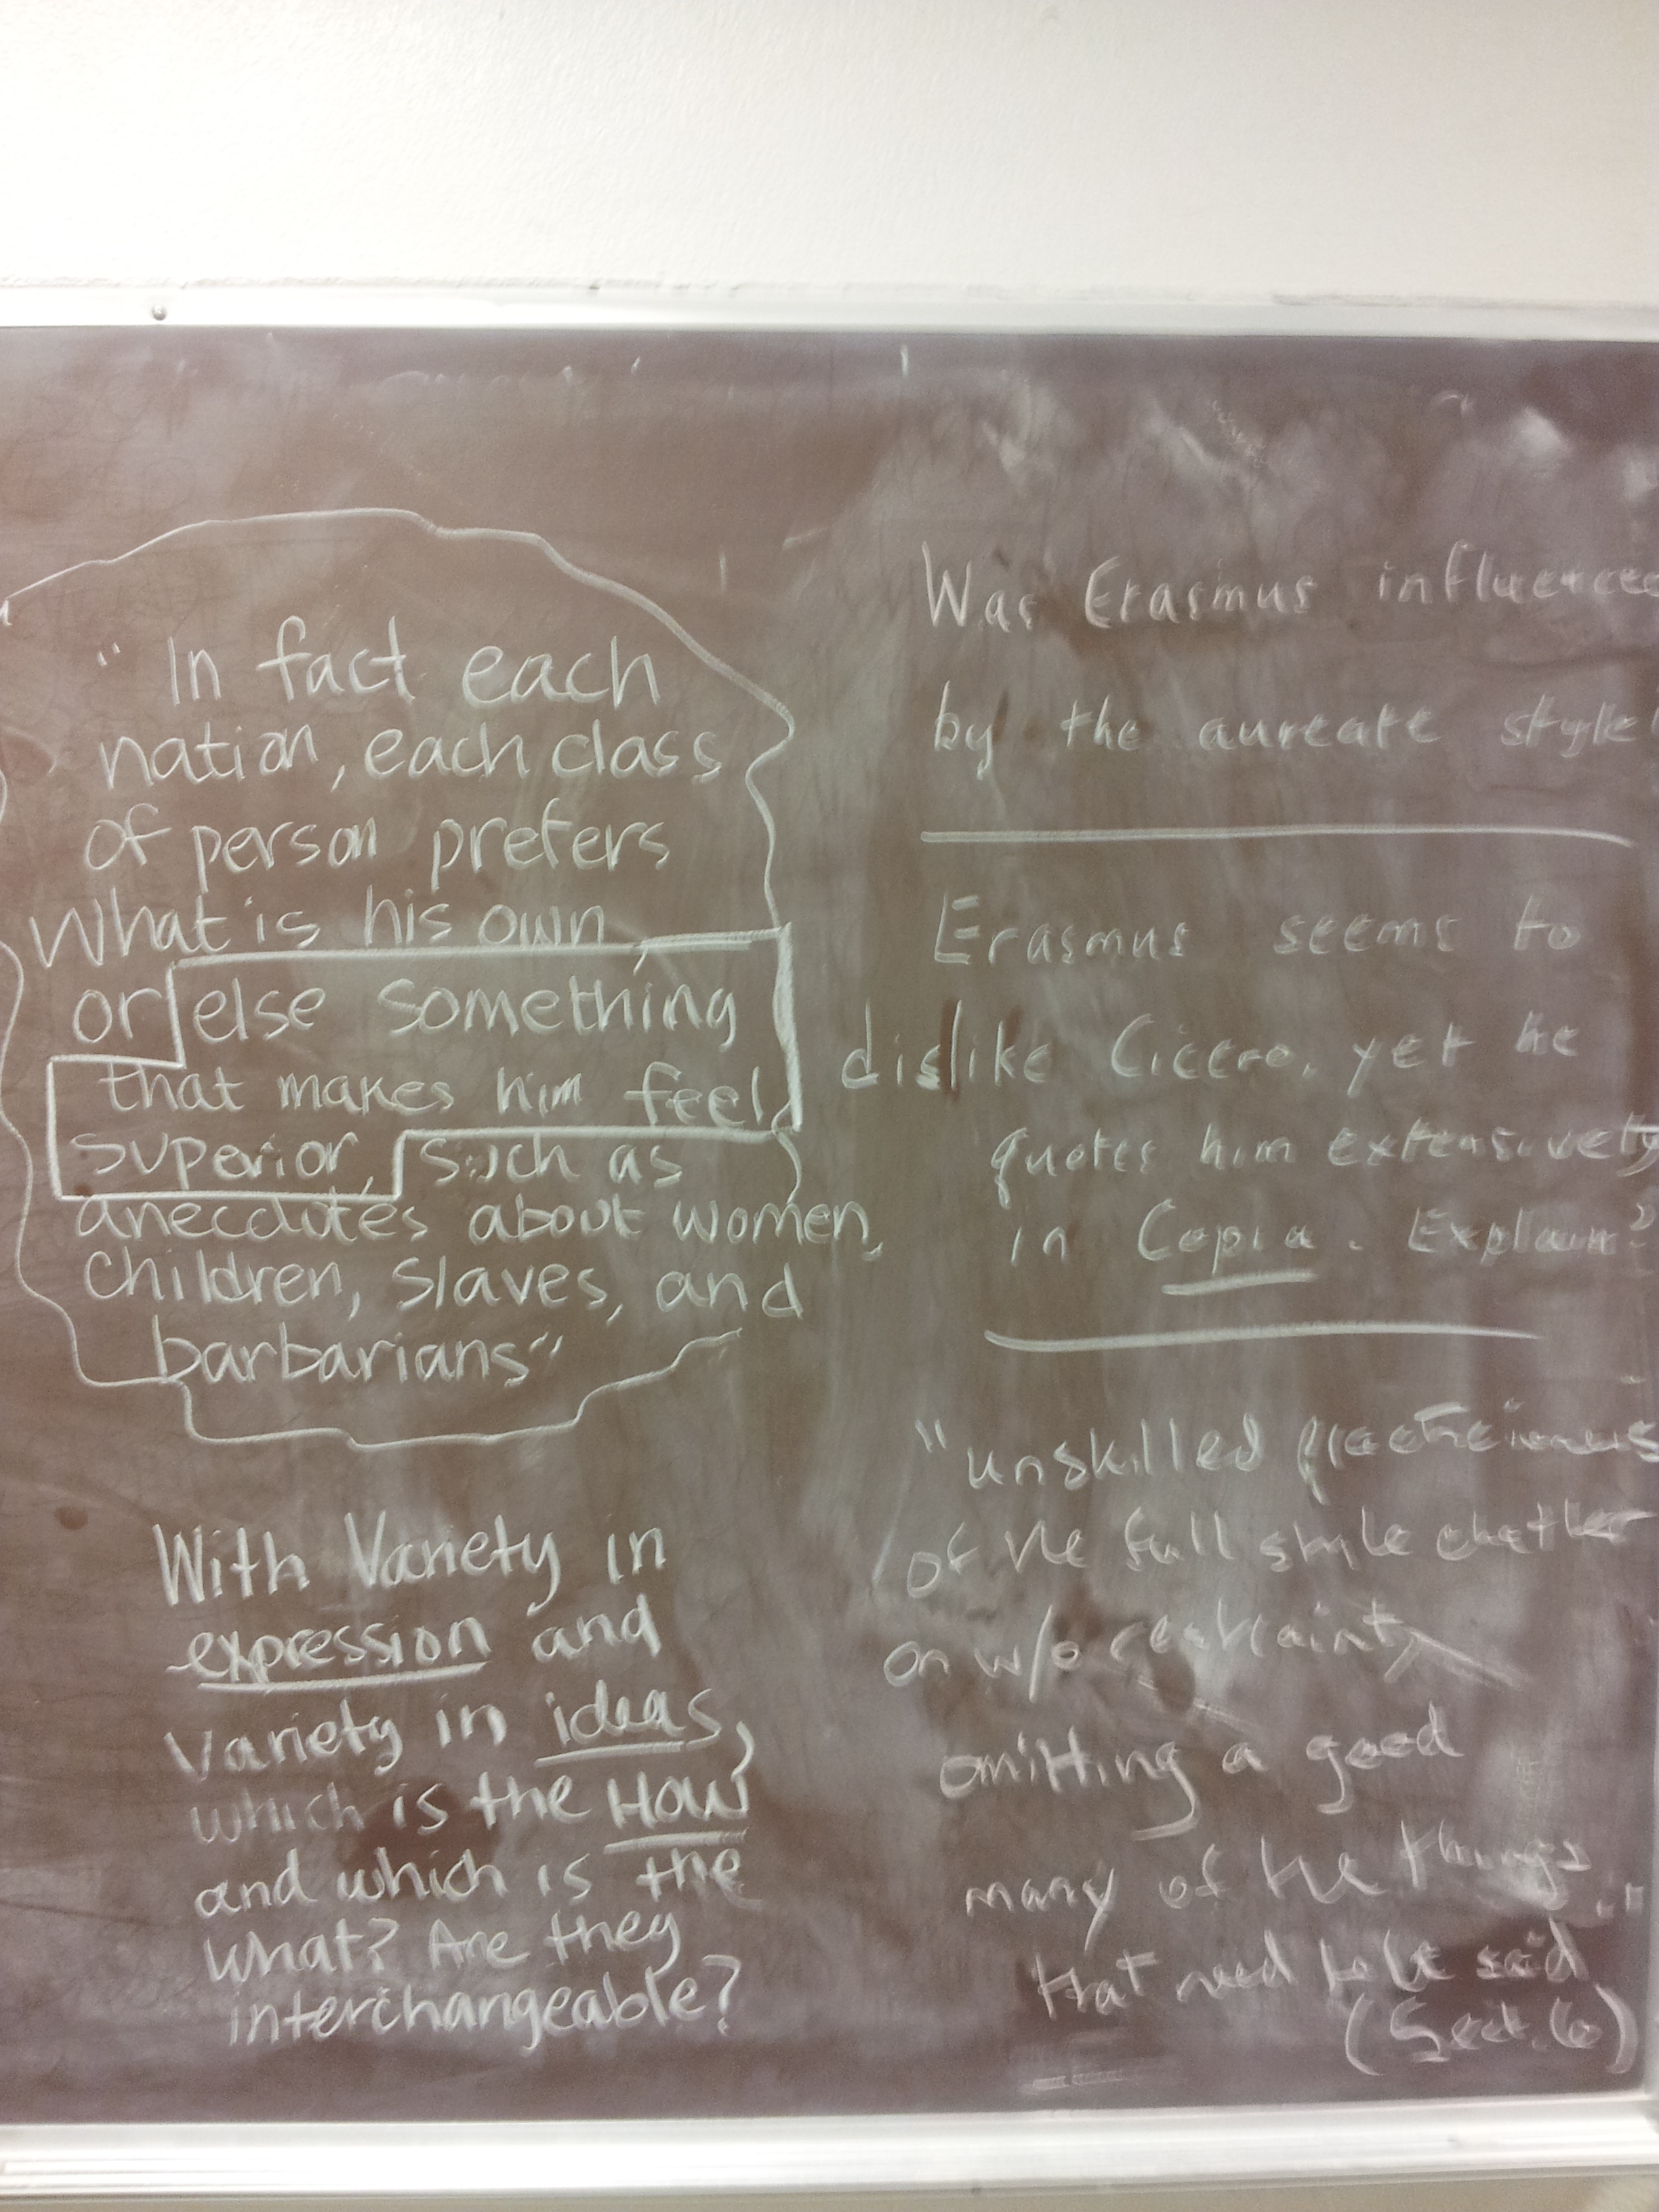 "In fact each
nation, each class
of person prefers
what is his own,
or else something
that makes him feel
superior, such as
anecdotes about women,
children, slaves, and
barbarians"
With Variety in
expression and
Variety in ideas,
which is the How
and which is the
what? Are they
interchangeable?
Was Erasmus influenced
by the aureate style
Erasmus seems to
dislike Cicero, yet he
quotes him extensively
in Copia. Explain?
"unskilled practitioners
of the full style chatter
on w/o restraint,
omitting a good
many of the things
that need to be said."
(Sect. 6)